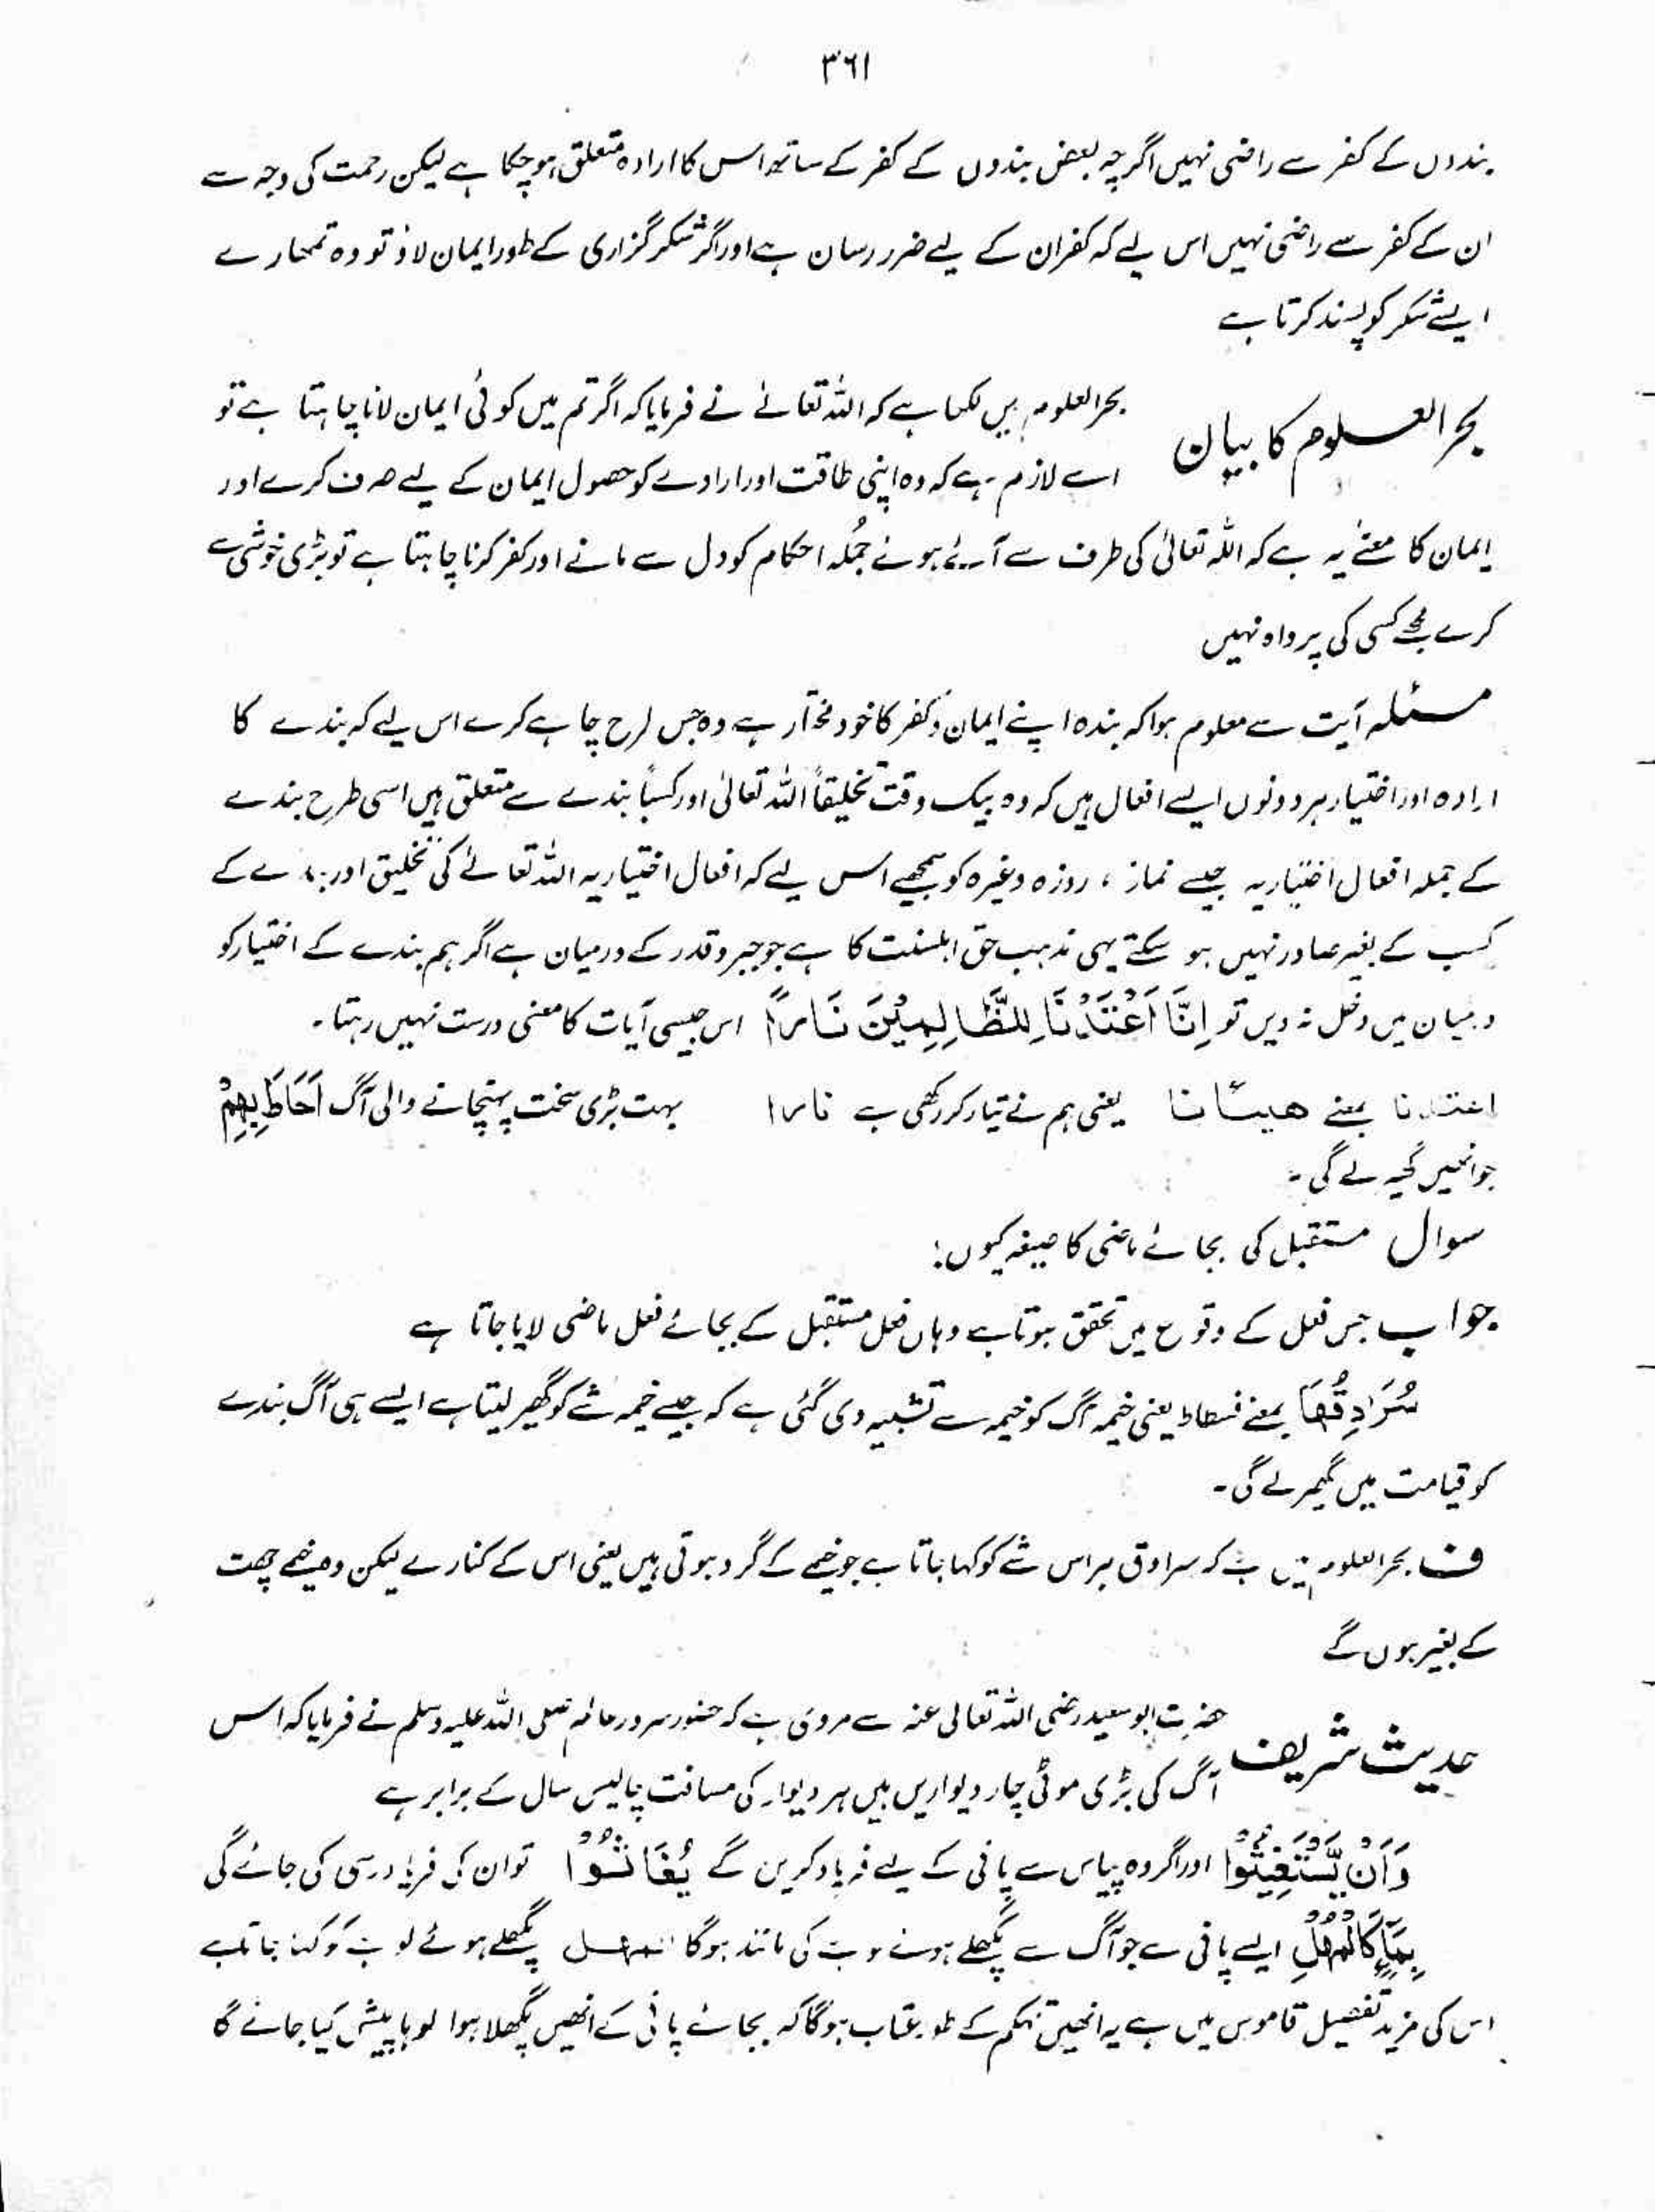 ۳۶۱
بندوں کے کفر سے راضی نہیں اگرچہ بعض بندوں کے کفر کے ساتھ اس کا ارادہ متعلق ہو چکا ہے لیکن رحمت کی وجہ سے
ان کے کفر سے راضی نہیں اس لیے کہ کفر ان کے لیے ضرر رسان ہے اور اگر شکر گزاری کے طور ایمان لاؤ تو وہ تمھارے
ایسے شکر کو پسند کرتا ہے
بحر العلوم کا بیان
بحر العلوم میں لکھا ہے کہ اللہ تعالےٰ نے فرمایا کہ اگر تم میں کوئی ایمان لانا چاہتا ہے تو
اسے لازم ہے کہ وہ اپنی طاقت اور ارادے کو حصول ایمان کے لیے صرف کرے اور
ایمان کا معنےٰ یہ ہے کہ اللہ تعالیٰ کی طرف سے آئے ہوئے جُملہ احکام کو دل سے مانے اور کفر کرنا چاہتا ہے تو بڑی خوشی سے
کرے مجھے کسی کی پرواہ نہیں
مسئلہ آیت سے معلوم ہوا کہ بندہ اپنے ایمان و کفر کا خود مختار ہے وہ جس طرح چاہے کرے اس لیے کہ بندے کا
ارادہ اور اختیار ہر دونوں ایسے افعال ہیں کہ وہ بیک وقت تخلیقاً اللہ تعالیٰ اور کسباً بندے سے متعلق ہیں اسی طرح بندے
کے جملہ افعال اختیاریہ جیسے نماز ، روزہ وغیرہ کو سمجھیے اس لیے کہ افعال اختیاریہ اللہ تعالےٰ کی تخلیق اور بندے کے
کسب کے بغیر صادر نہیں ہو سکتے یہی مذہب حق اہلسنت کا ہے جو جبر و قدر کے درمیان ہے اگر ہم بندے کے اختیار کو
درمیان میں دخل نہ دیں تو اِنَّا اَعْتَدْنَا لِلظَّالِمِيْنَ نَارًا اس جیسی آیات کا معنی درست نہیں رہتا۔
اعتدنا بمعنے ھیّانا یعنی ہم نے تیار کر رکھی ہے نارا بہت بڑی سخت پہنچانے والی آگ اَحَاطَ بِهِمْ
جو انھیں گھیر لے گی۔
سوال مستقبل کی بجائے ماضی کا صیغہ کیوں؛
جواب جس فعل کے وقوع میں تحقق ہوتا ہے وہاں فعل مستقبل کے بجائے فعل ماضی لایا جاتا ہے
سُرَادِقُهَا بمعنے فسطاط یعنی خیمہ آگ کو خیمہ سے تشبیہ دی گئی ہے کہ جیسے خیمہ شے کو گھیر لیتا ہے ایسے ہی آگ بندے
کو قیامت میں گھیر لے گی۔
ف بحر العلوم میں ہے کہ سرادق ہر اس شے کو کہا جاتا ہے جو خیمے کے گرد ہوتی ہیں یعنی اس کے کنارے لیکن وہ خیمے چھت
کے بغیر ہوں گے
حدیث شریف
حضرت ابوسعید رضی اللہ تعالیٰ عنہ سے مروی ہے کہ حضور سرور عالم صلی اللہ علیہ وسلم نے فرمایا کہ اس
آگ کی بڑی موٹی چار دیواریں ہیں ہر دیوار کی مسافت چالیس سال کے برابر ہے
وَاَنْ يَّسْتَغِيْثُوْا اور اگر وہ پیاس سے پانی کے لیے فریاد کریں گے يُغَاثُوْا تو ان کی فریاد رسی کی جائے گی
بِمَآءٍ كَالْمُهْلِ ایسے پانی سے جو آگ سے پگھلے ہوئے لوہے کی مانند ہوگا المھل پگھلے ہوئے لوہے کو کہا جاتا ہے
اس کی مزید تفصیل قاموس میں ہے یہ انھیں تہکم کے طور عتاب ہوگا کہ بجائے پانی کے انھیں پگھلا ہوا لوہا پیش کیا جائے گا